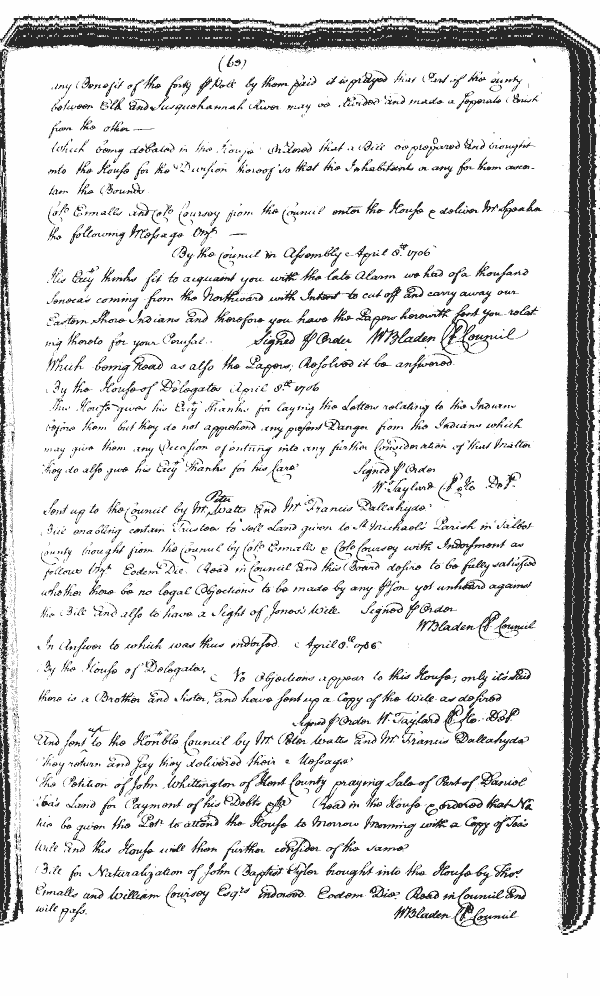 (63)
any Benefit of the forty ℔ Poll by them paid it is prayed that Part of the County
between Elk and Susquehannah River may be divided and made a seperate Parish
from the other —
Which being debated in the House Ordered that a Bill be prepared and brought
into the House for the Division thereof so that the Inhabitants or any for them ascer-
tain the Bounds
Colo Ennalls and Colo Coursey from the Council enter the House & deliver Mr Speaker
the following Message Vizt —
By the Council in Assembly April 8th 1706
His Excy thinks fit to acquaint you with the late Alarm we had of a thousand
Seneca's coming from the Northward with Intent to cut off and carry away our
Eastern Shore Indians and therefore you have the Papers herewith sent you relat
ing thereto for your Perusal. Signed ℔ Order W Bladen Cl Council
Which being Read as also the Papers; Resolved it be answered.
By the House of Delegates April 8th 1706
This House gives his Excy Thanks for laying the Letters relating to the Indians
before them but they do not apprehend any present Danger from the Indians which
may give them any Occasion of entring into any further Consideration of that Matter
they do also give his Excy Thanks for his Care Signed ℔ Order
W. Taylard Cl Ho. Del.
Sent up to the Council by Mr Peter Watts and Mr Francis Dallahyde
Bill enabling certain Trustees to sell Land given to St Michaels Parish in Talbot
County brought from the Council by Colo Ennalls & Colo Coursey with Indorsment as
follows Vizt Eodem Die. Read in Council and this Board desire to be fully satisfied
whether there be no legal Objections to be made by any ℔son yet unheard against
the Bill and also to have a Sight of Jones's Will Signed ℔ Order
W Bladen Cl Council
In Answer to which was thus endorsed April 8th 1706
By the House of Delegates,
No Objections appear to this House; only it's said
there is a Brother and Sister, and have sent up a Copy of the Will as desired
Signed ℔ Order W. Taylard Cl Ho. Del.
And sent up to the Honble Council by Mr Peter Watts and Mr Francis Dallahyde
They return and say they delivered their Message
The Petition of John Whittington of Kent County praying Sale of Part of Daniel
Toas Land for Payment of his Debts Read in the House & ordered that No
tice be given the Petr to attend the House to Morrow Morning with a Copy of Toas
Will and this House will then further consider of the same
Bill for Naturalization of John Baptist Tyler brought into the House by Thos
Ennalls and William Coursey Esqrs indorsed. Eodem Die. Read in Council and
will pass. W Bladen Cl Council